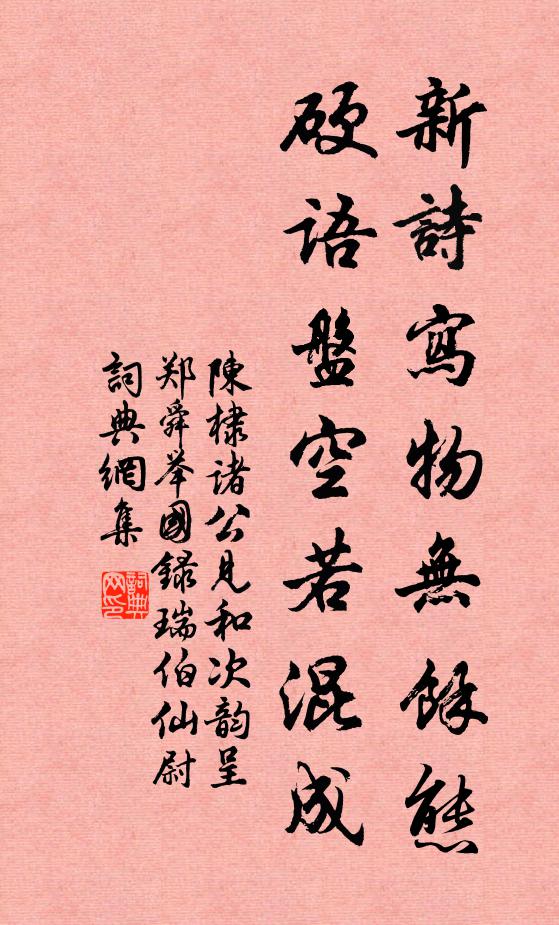 新詩寫物無餘態
硬語盤空若混成
陳棣諸公見和次韵呈
郑舜举國録瑞伯仙尉
詞典網集
詞典
网印